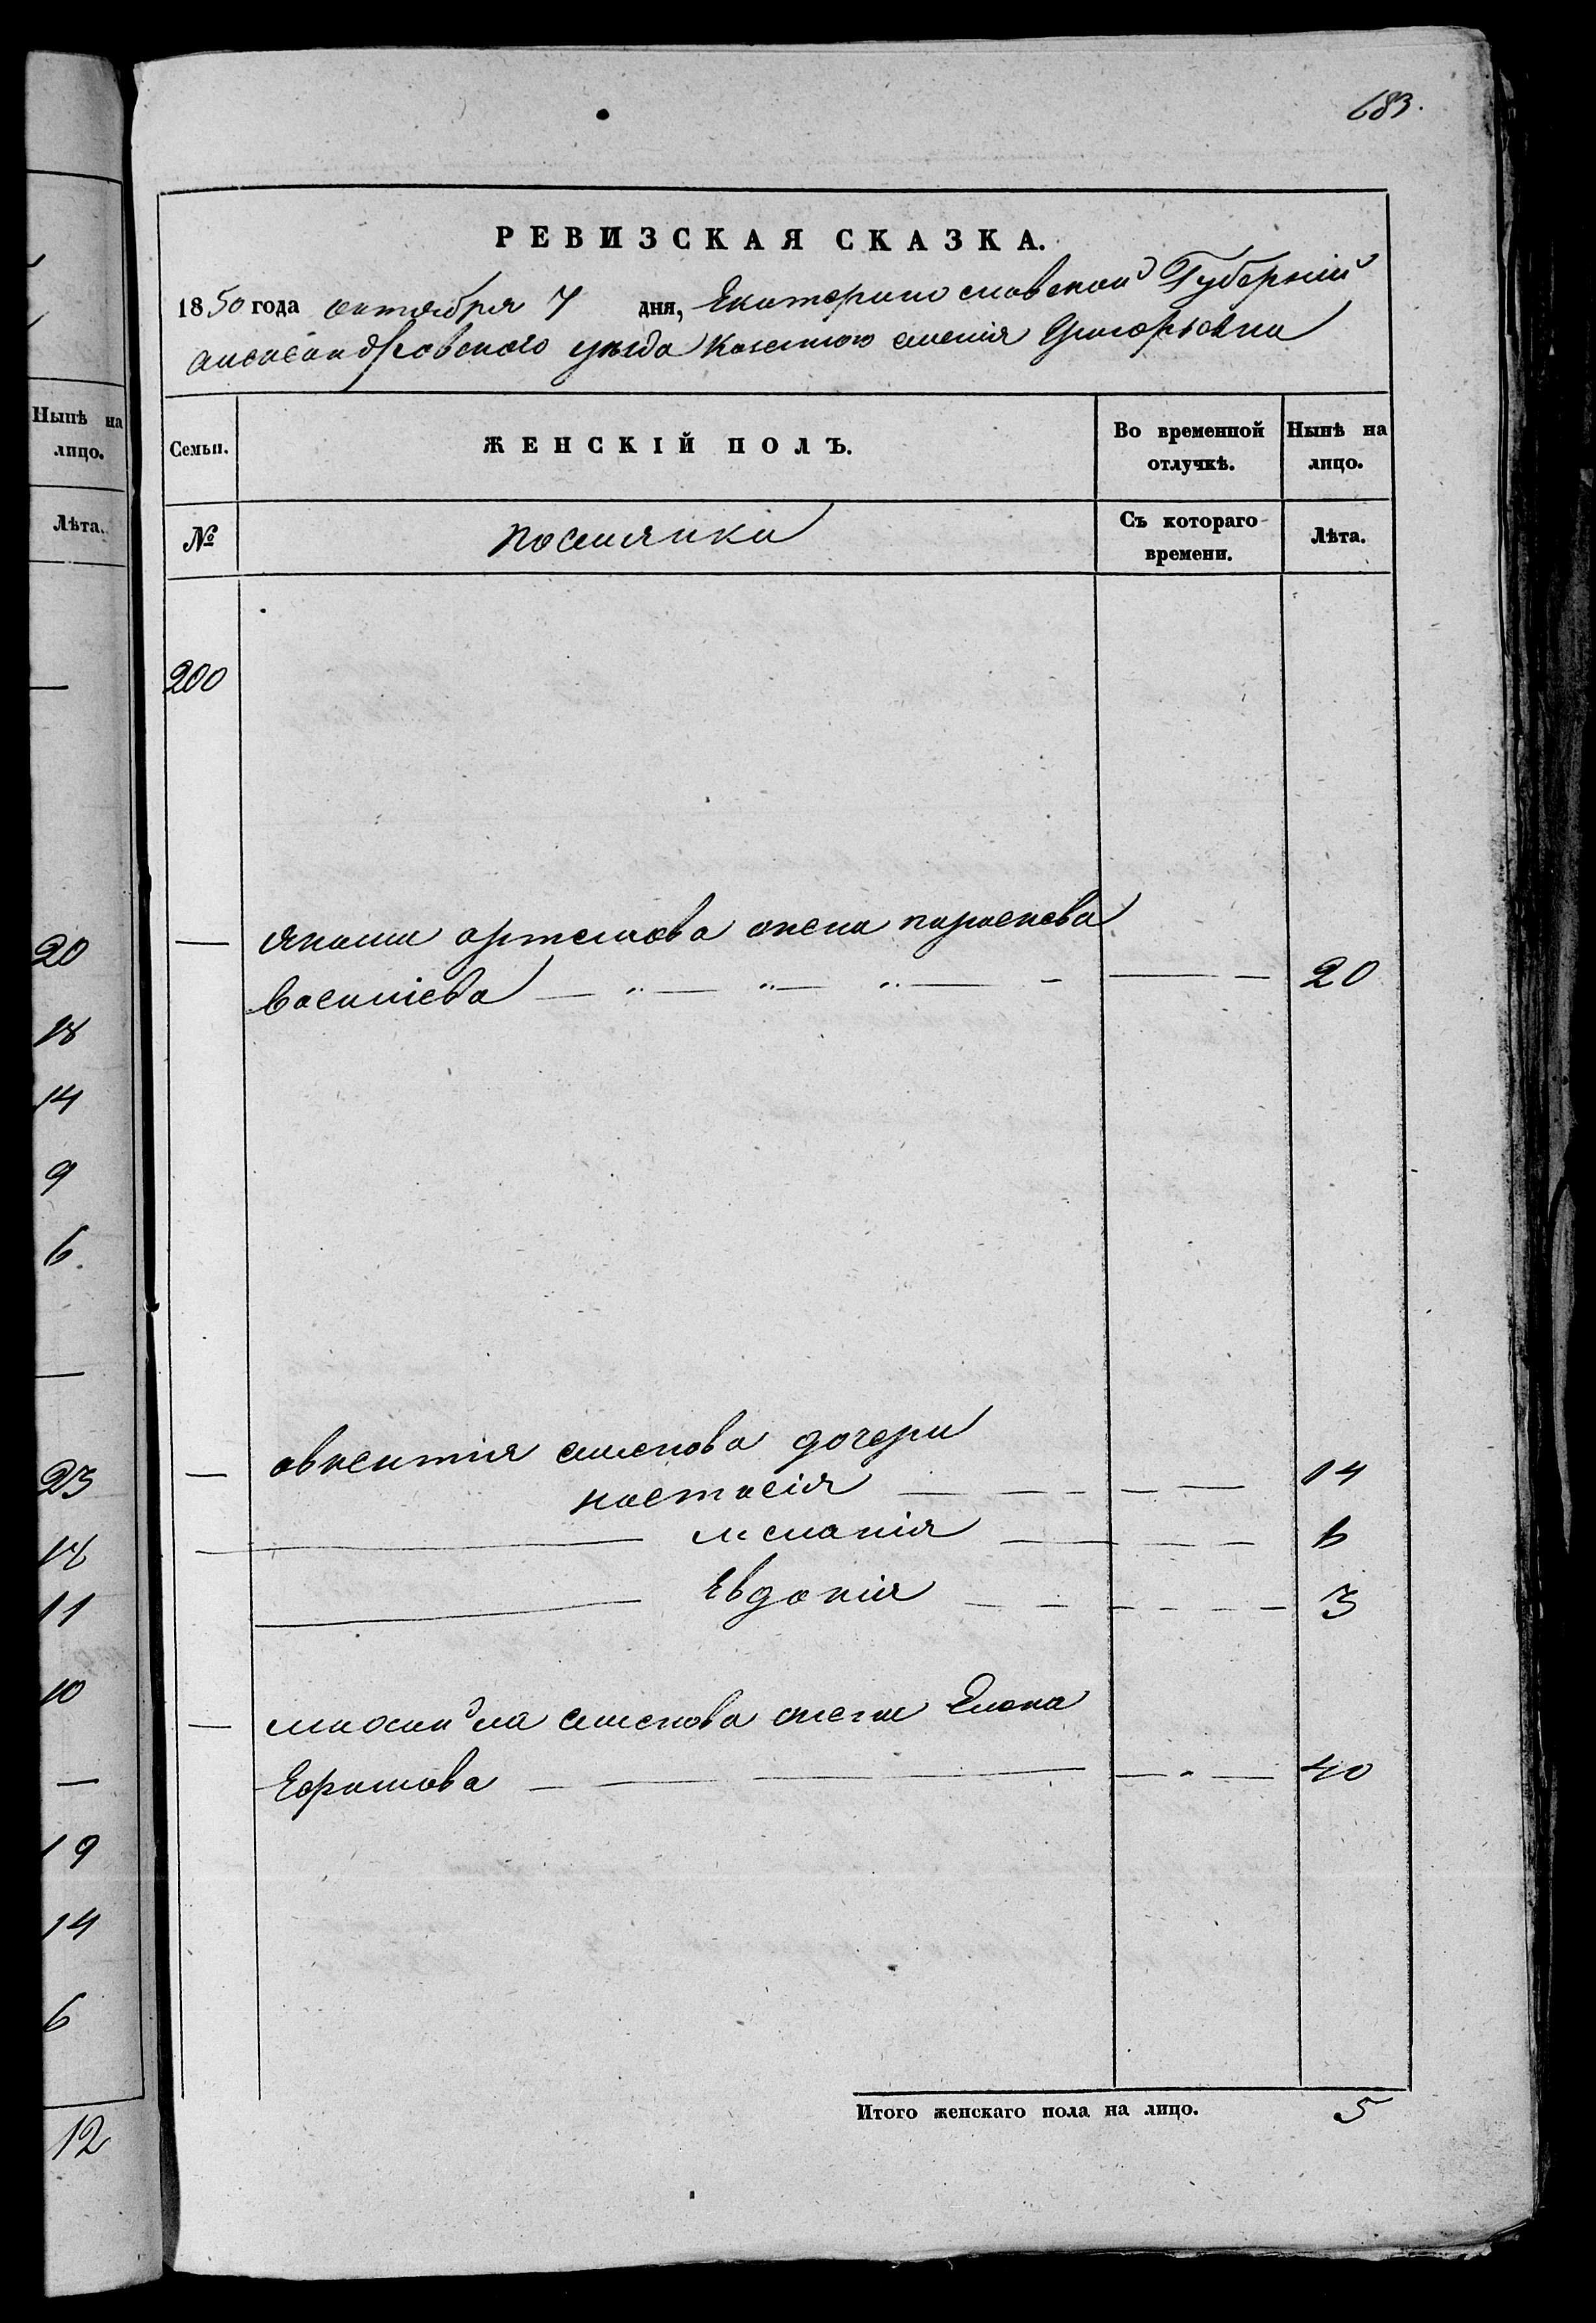 683.
РЕВИЗСКАЯ СКАЗКА.
1850 года октября 7 дня, Екатеринославской Губерніи
александровского уезда казенного селенія Григорьевки
Семьи. ЖЕНСКІЙ ПОЛЪ. Во временной отлучкѣ. Нынѣ на лицо.
№ поселянки Съ котораго времени. Лѣта.
200
— якима артемова жена параскева
василіева — — — 20
— авксентія семенова дочери
настасія — — — 14
— меланія — — — 6
— Евдокія — — — 3
— михайла семенова жена Елена
Ефимова — — — 40
Итого женскаго пола на лицо. 5
Нынѣ на
лицо.
Лѣта.
—
20
18
14
9
6.
—
23
18
11
10
—
19
14
6
12